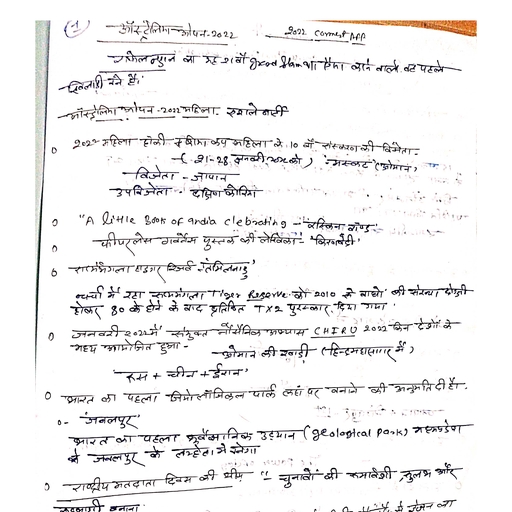 (1) ऑस्ट्रेलिया ओपन-2022 2022 current App
राफेल नडाल का यह 21वाँ Grand Slam था ऐसा करने वाले वह पहले
खिलाड़ी बने हैं।
ऑस्ट्रेलिया ओपन-2022 महिला - एशले बार्टी
0 2022 महिला हॉकी एशिया कप महिला के 10 वाँ संस्करण की विजेता-
- ( 21-28 जनवरी 2022 को ) मस्कट (ओमान)
विजेता - जापान
उपविजेता - दक्षिण कोरिया
0 "A little Book of india Clebrating - रस्किन बॉण्ड
0 फीयरलेस गवर्नेंस पुस्तक की लेखिका - किरणबेदी
0 सत्यमंगला टाइगर रिजर्व - तमिलनाडु
चर्चा में रहा सत्यमंगला Tiger Reserve को 2010 से बाघों की संख्या दोगुनी
होकर 80 के होने के बाद प्रतिष्ठित TX2 पुरस्कार दिया गया
0 जनवरी 2022 में संयुक्त नौसैनिक अभ्यास CHIRU 2022 किन देशों के
मध्य आयोजित हुआ -
ओमान की खाड़ी (हिन्दमहासागर में)
रूस + चीन + ईरान
0 भारत का पहला जियोलॉजिकल पार्क कहां पर बनाने की अनुमति दी है.
0- जबलपुर
भारत का पहला भूवैज्ञानिक उद्यान (geological Park) मध्यप्रदेश
के जबलपुर के लम्हेटा में बनेगा
0 राष्ट्रीय मतदाता दिवस की थीम - चुनावों को समावेशी, सुलभ और
बनाना